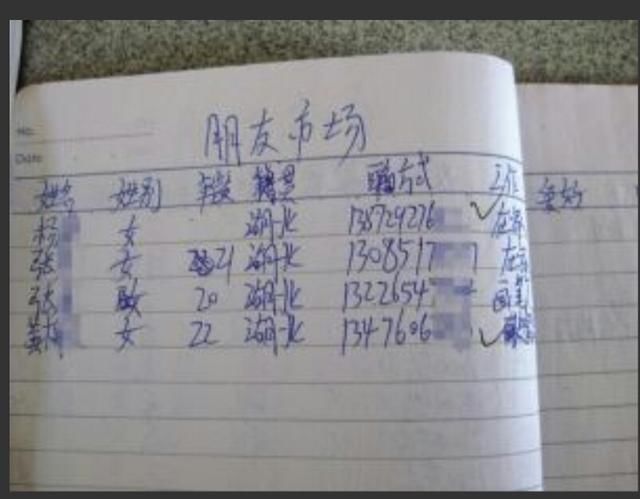 No.
Date
朋友市场
姓名 姓别 年龄 籍贯 联系方式 工作 爱好
杨 女 湖北 138729276
张 女 21 湖北 1308517 7
张 女 20 湖北 1322654
黄 女 22 湖北 1347606